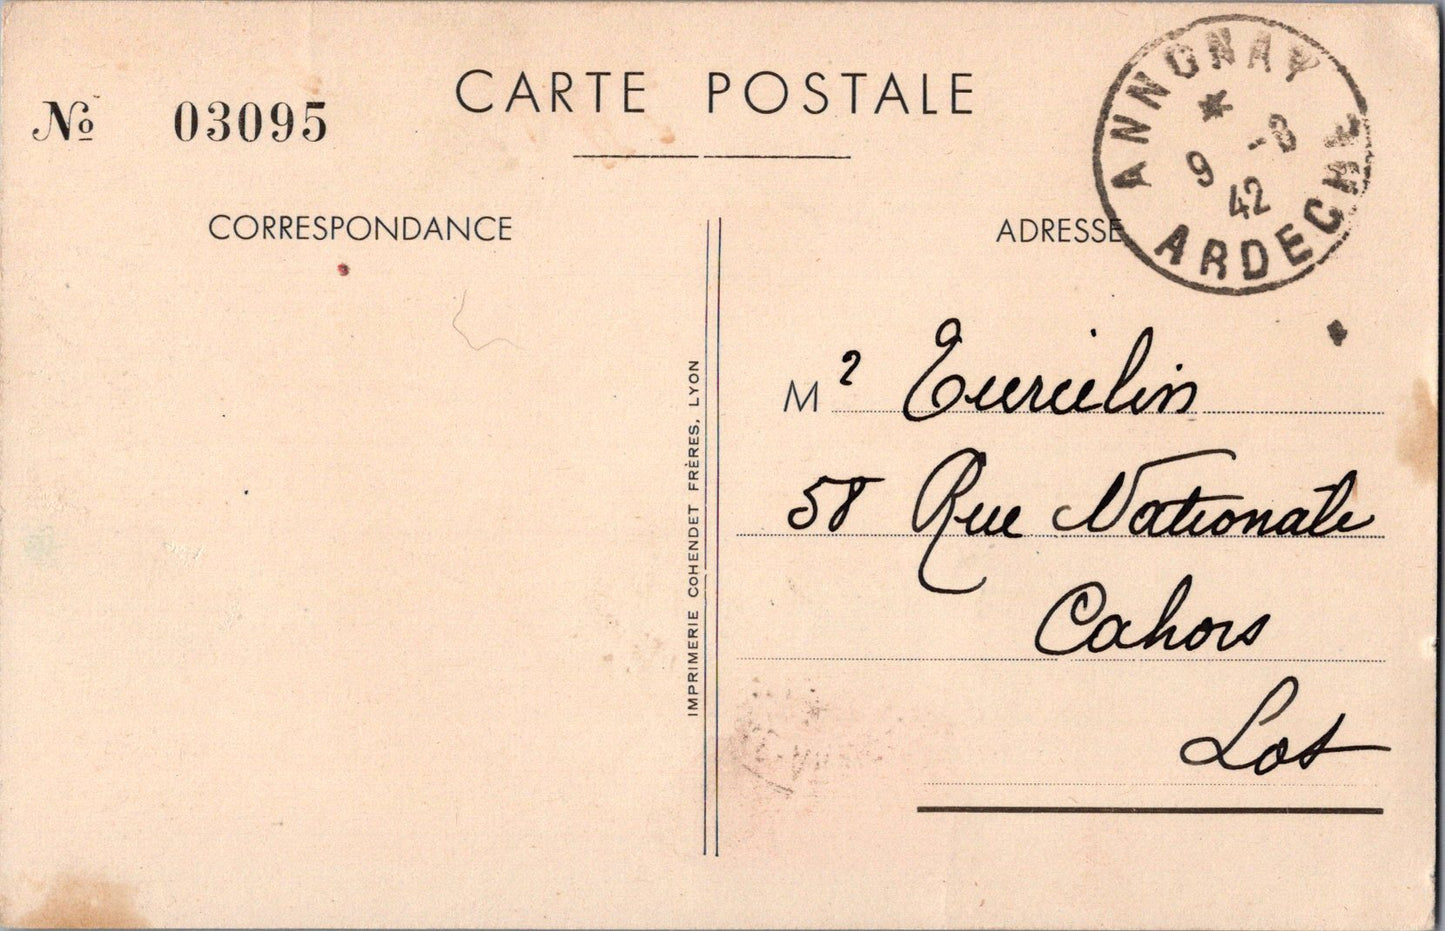 CARTE POSTALE
Nº 03095
CORRESPONDANCE
ADRESSE
ANNONAY
* 9 -8 42
ARDECHE
IMPRIMERIE COHENDET FRÈRES, LYON
Mr
58 Rue Nationale
Cahors
Lot